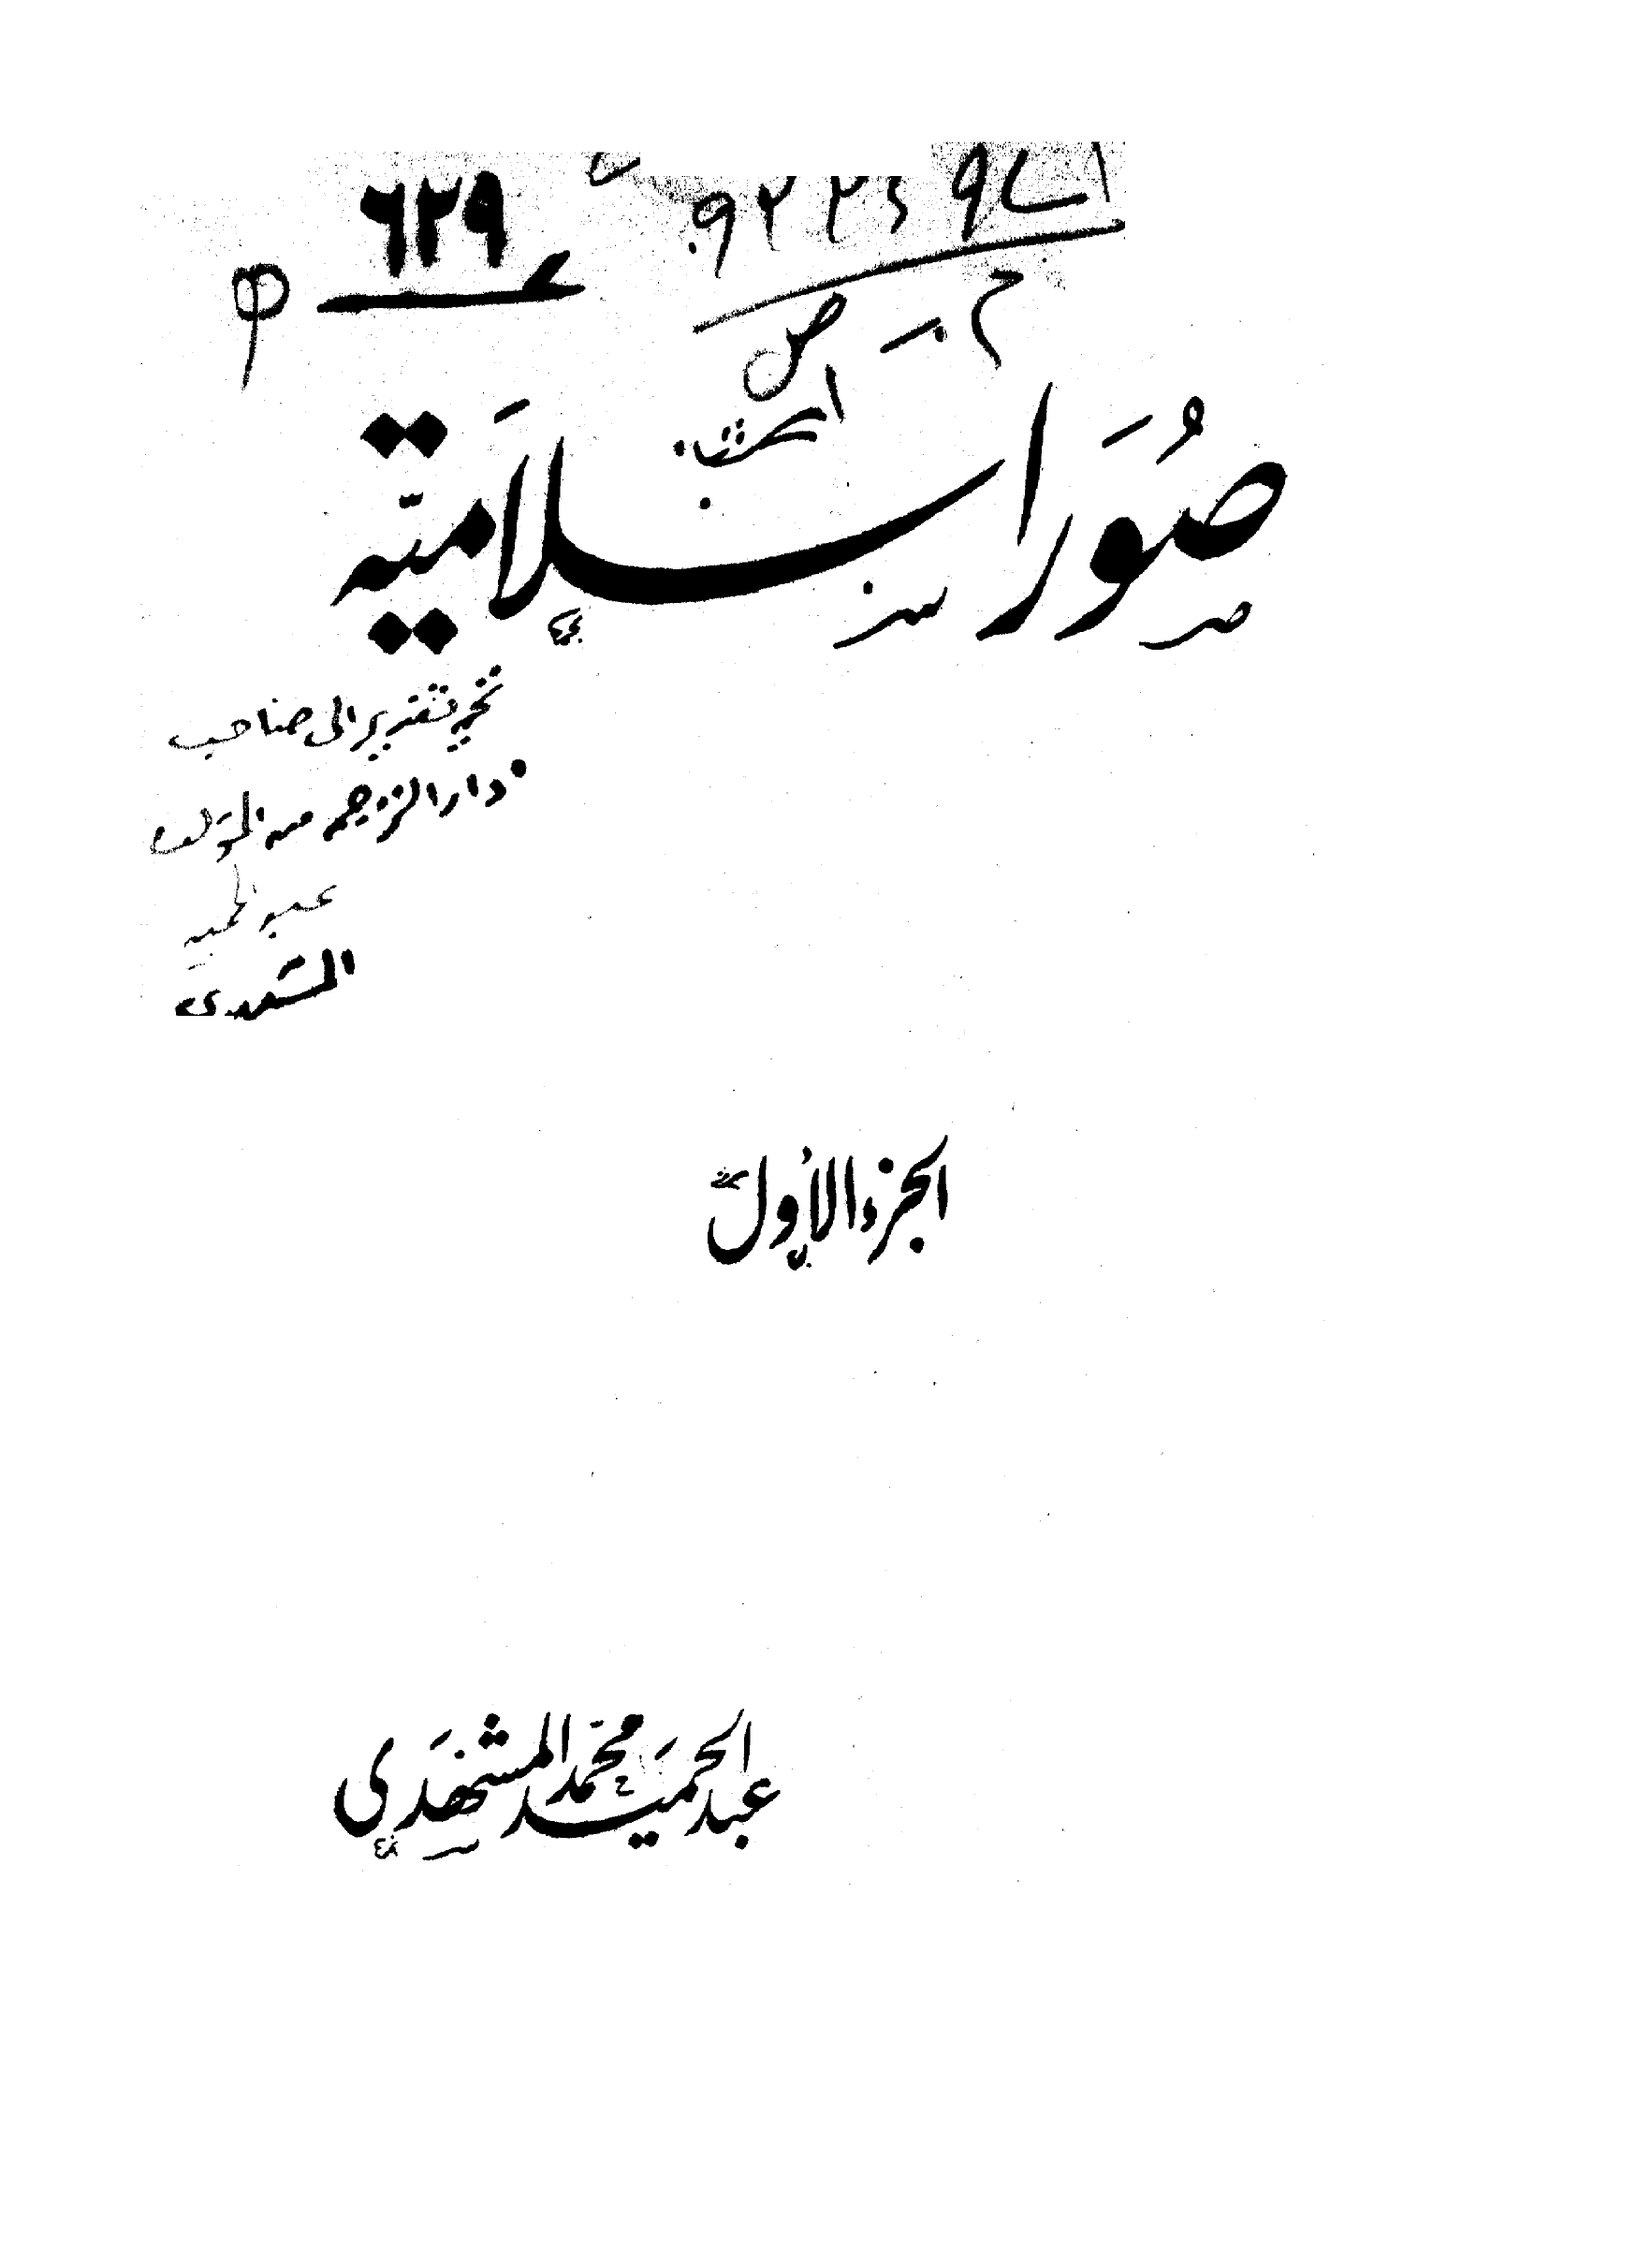 ٦٢٩
صُوَر إسْلَامِيَّة
تقدير الى صاحب
دار الترجمة من المؤلف
المشهدى
الجزء الأول
عبد الحميد محمد المشهدي